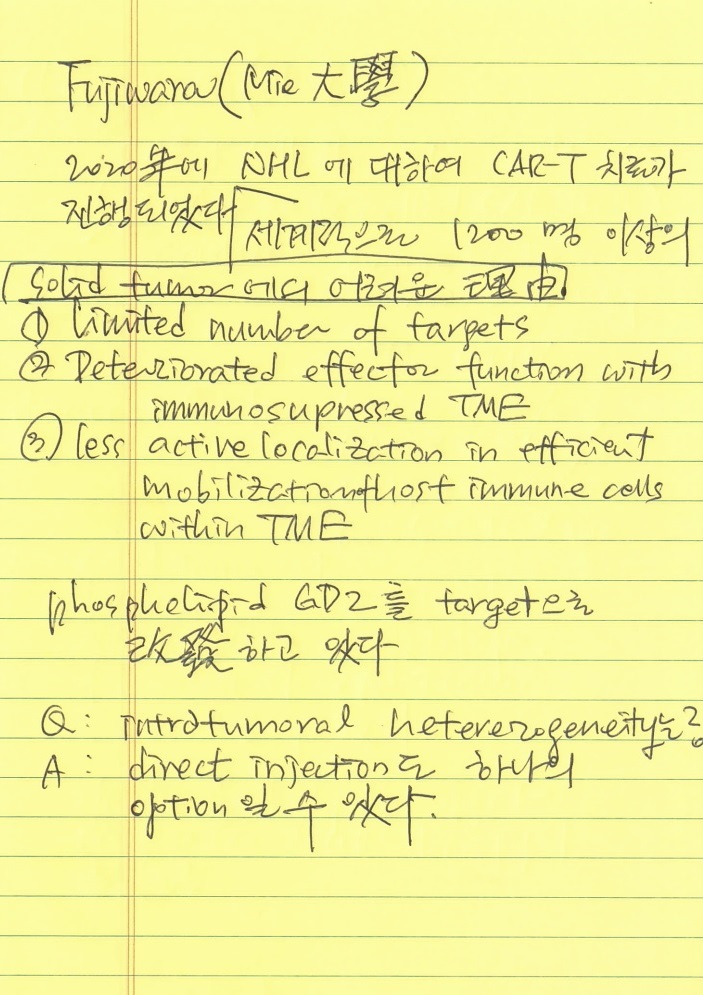 Fujiwara (Mie 大學)
2020年에 NHL에 대하여 CAR-T 치료가
진행되었다 세계적으로 1200명 이상의
Solid tumor에서 어려운 理由
① Limited number of targets
② Deteriorated effector function with
immunosupressed TME
③ less active localization in efficient
mobilization of host immune cells
within TME
phospholipid GD2를 target으로
改發하고 있다
Q: intratumoral heterogeneity는?
A: direct injection도 하나의
option일 수 있다.